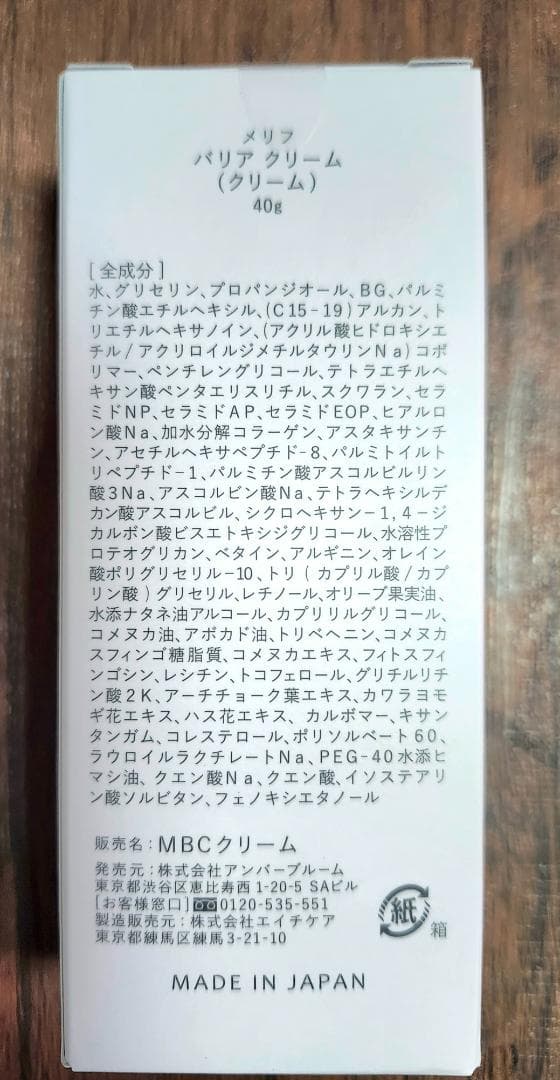 メリフ
バリア クリーム
(クリーム)
40g
[全成分]
水、グリセリン、プロパンジオール、BG、パルミ
チン酸エチルヘキシル、(C15-19)アルカン、ト
リエチルヘキサノイン、(アクリル酸ヒドロキシエ
チル/アクリロイルジメチルタウリンNa)コポ
リマー、ペンチレングリコール、テトラエチルヘ
キサン酸ペンタエリスリチル、スクワラン、セラ
ミドNP、セラミドAP、セラミドEOP、ヒアルロ
ン酸Na、加水分解コラーゲン、アスタキサンチ
ン、アセチルヘキサペプチド-8、パルミトイルト
リペプチド-1、パルミチン酸アスコルビルリン
酸3Na、アスコルビン酸Na、テトラヘキシルデ
カン酸アスコルビル、シクロヘキサン-1,4-ジ
カルボン酸ビスエトキシジグリコール、水溶性プ
ロテオグリカン、ベタイン、アルギニン、オレイン
酸ポリグリセリル-10、トリ(カプリル酸/カプ
リン酸)グリセリル、レチノール、オリーブ果実油、
水添ナタネ油アルコール、カプリリルグリコール、
コメヌカ油、アボカド油、トリベヘニン、コメヌカ
スフィンゴ糖脂質、コメヌカエキス、フィトスフィ
ンゴシン、レシチン、トコフェロール、グリチルリチ
ン酸2K、アーチチョーク葉エキス、カワラヨモ
ギ花エキス、ハス花エキス、カルボマー、キサン
タンガム、コレステロール、ポリソルベート60、
ラウロイルラクチレートNa、PEG-40水添ヒ
マシ油、クエン酸Na、クエン酸、イソステアリ
ン酸ソルビタン、フェノキシエタノール
販売名:MBCクリーム
発売元:株式会社アンバーブルーム
東京都渋谷区恵比寿西1-20-5 SAビル
[お客様窓口]0120-535-551
製造販売元:株式会社エイチケア
東京都練馬区練馬3-21-10
紙
箱
MADE IN JAPAN